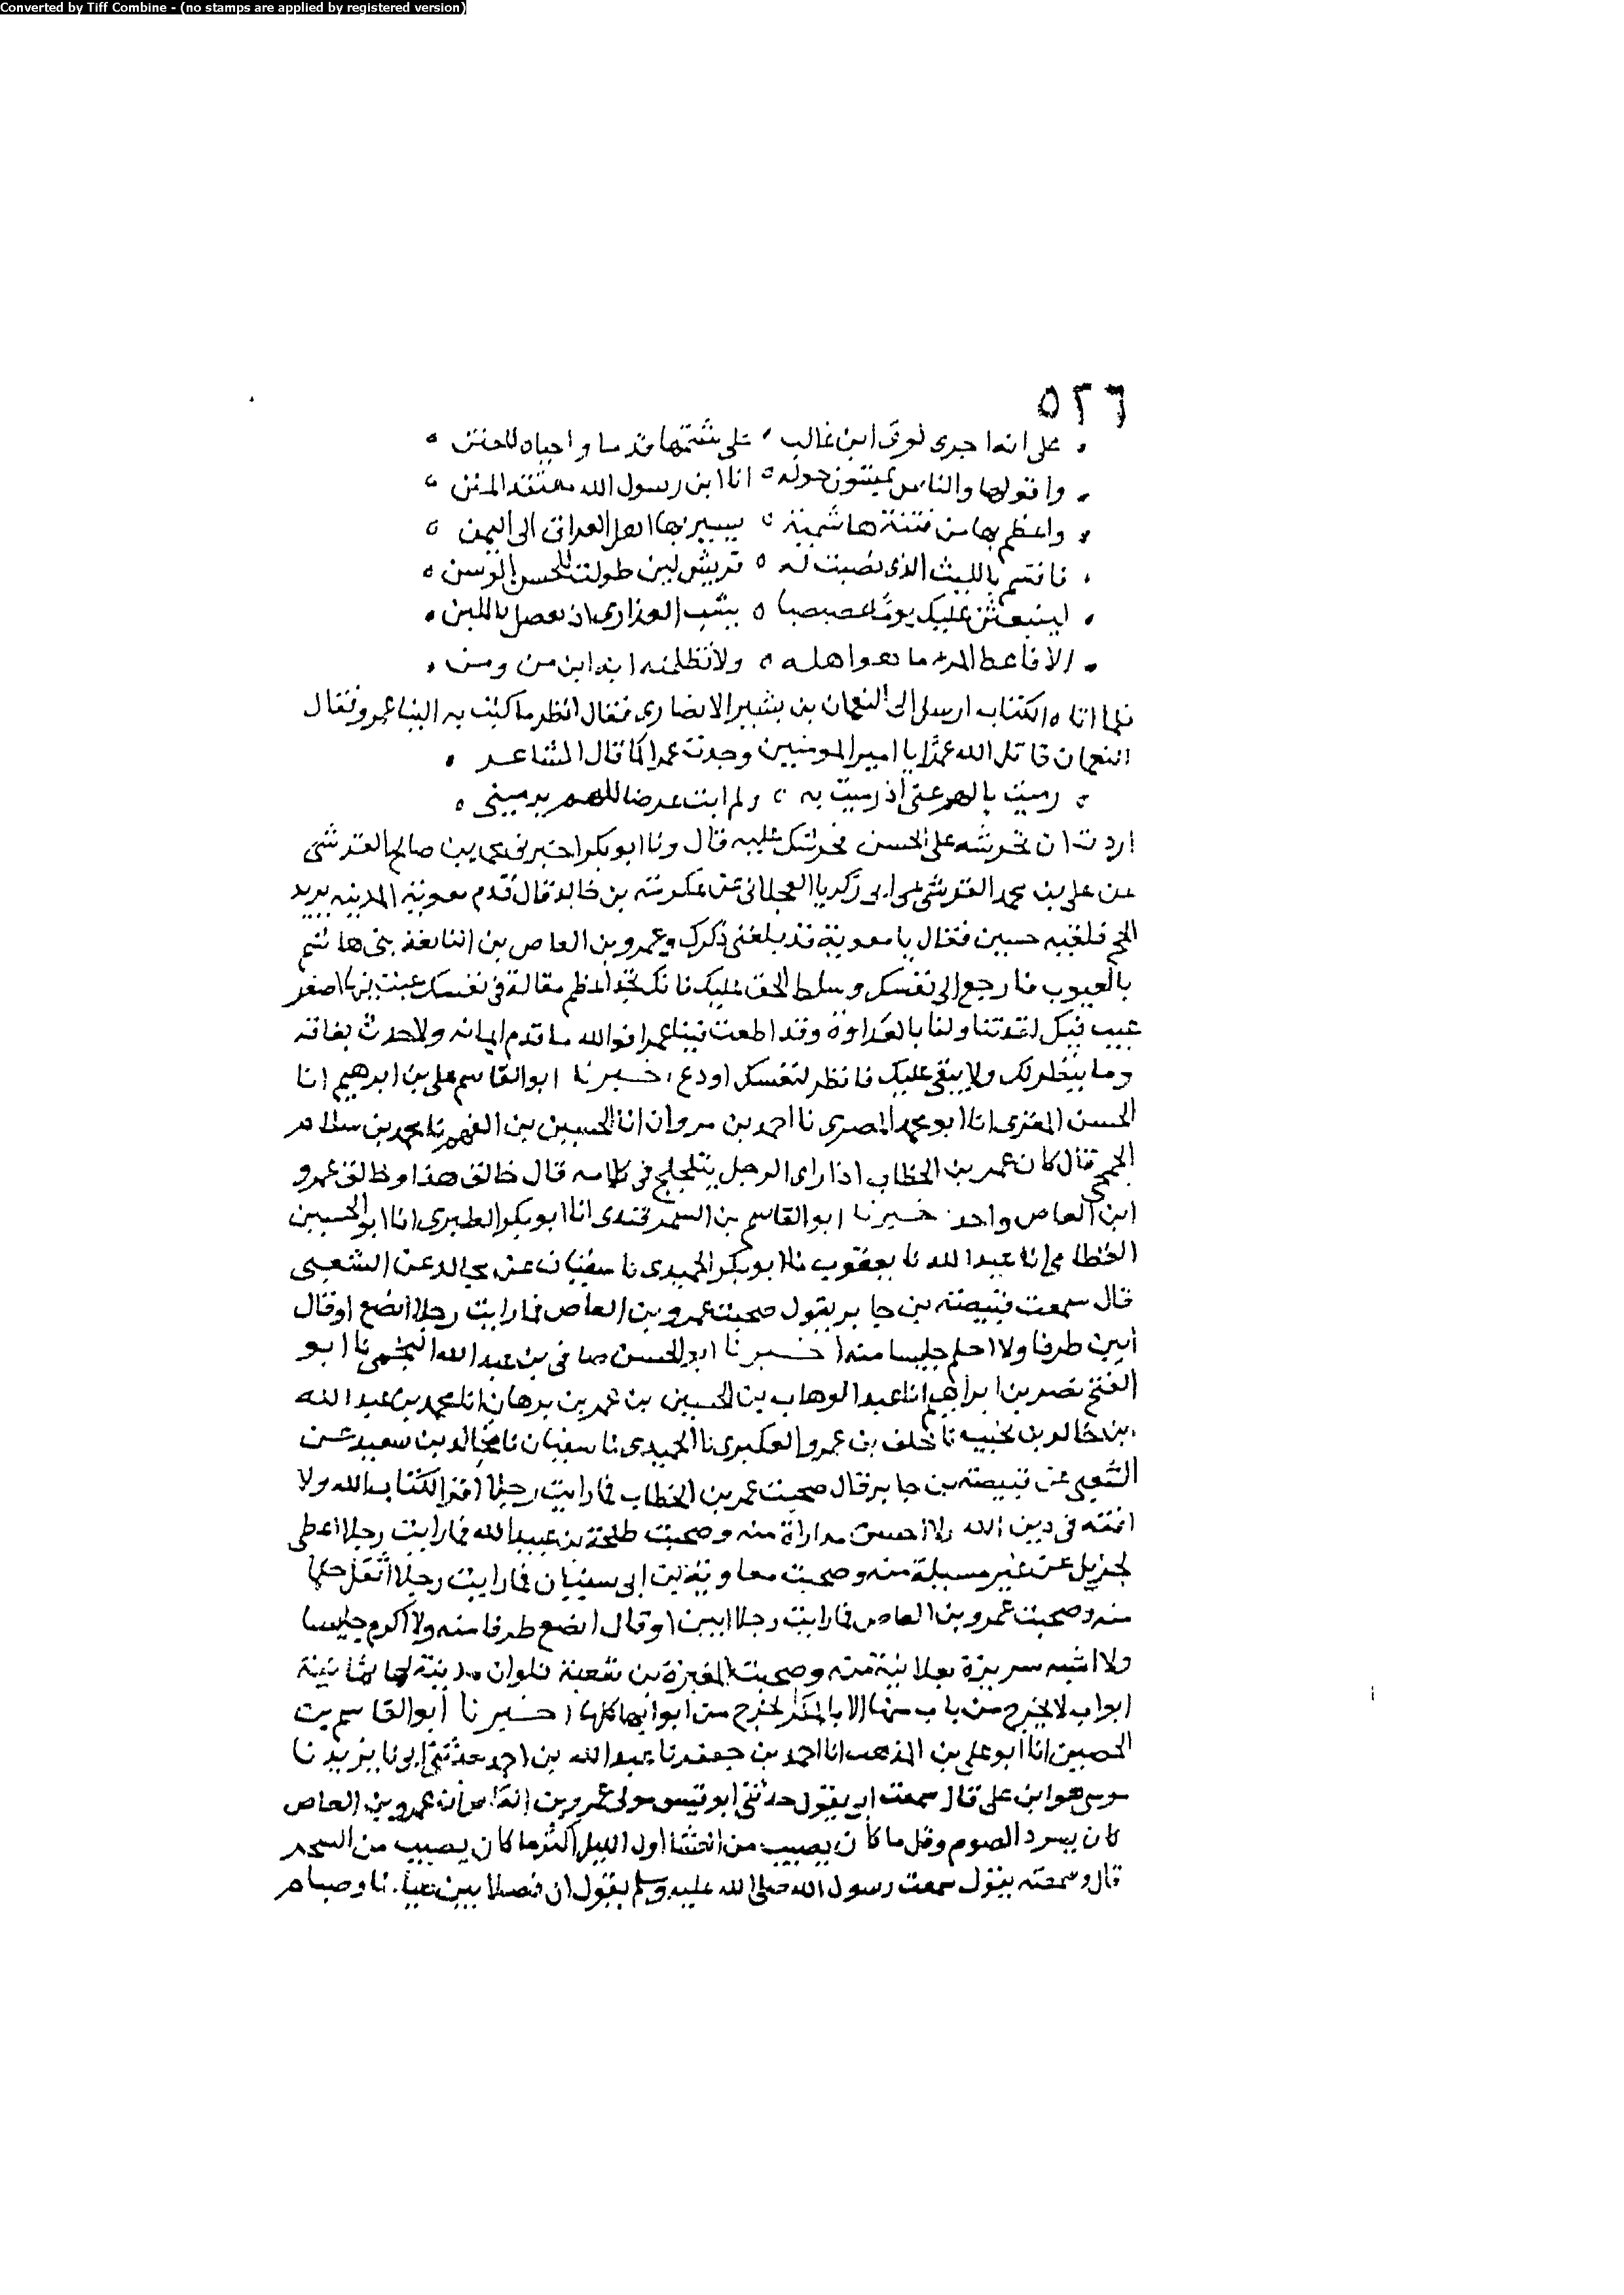 Converted by Tiff Combine - (no stamps are applied by registered version)
٥٢٦
على انها اجرى لوى ابن غالب على شتمها قدما واحياه للحنن
واقولها والناس يمشون حوله انا ابن رسول الله معتقد المنن
واعظم بها من فتنة هاشمية يسير بها اهل العراق الى اليمن
فاقسم بالليث الذي نصبت له قريش لين طولت للحسن الوسن
لينبعثن عليك يوما عصبصبا يشيب العذارى ان تعصل باللبن
الا فاعط المرء ما هو اهله ولا تظلمنه ابدا بن من ومن
فلما اتاه الكتاب ارسل الى النعمان بن بشير الانصاري فقال انظر ما كتب به الينا عمرو فقال
النعمان قاتل الله عمرا يا امير المومنين وجدت عمرا كما قال الشاعر
رميت بالهم عنى اذ رميت به ولم ابت عرضا للهم يرميني
اردت ان تحرشه على الحسن فحرشك عليه قال ونا ابو بكر اخبرني محمد بن صالح القرشي
عن علي بن محمد القرشي عن ابي زكريا العجلاني عن عكرمة بن خالد قال قدم معوية المدينة يريد
الحج فلقيه حسين فقال يا معوية قد بلغني ذكرك وعمرو بن العاص بن النابغة بني هاشم
بالعيوب فارجع الى نفسك وسلط الحق عليك فانك تجد اعظم مقالة في نفسك عبت بها اصغر
عيب فيك لقد تناولنا بالعداوة وقد اطعت فينا عمرا فوالله ما قدم ايمانه ولا حدث نفاقه
وما ينظر لك ولا يبقي عليك فانظر لنفسك اودع اخبرنا ابو القاسم علي بن ابرهيم انا
الحسن المقرى انا ابو محمد المصري نا احمد بن مروان انا الحسين بن الفهم نا محمد بن سلام
الجمحي قال كان عمر بن الخطاب اذا راى الرجل يتلجلج في كلامه قال خالق هذا وخالق عمرو
ابن العاص واحد اخبرنا ابو القاسم بن السمرقندى انا ابو بكر الطبرى انا ابو الحسين
القطان انا عبد الله نا يعقوب نا ابو بكر الحميدى نا سفيان عن مجالد عن الشعبى
قال سمعت قبيصة بن جابر يقول صحبت عمرو بن العاص فما رايت رجلا انصع اوقال
ابين طرفا ولا احلم جليسا منه اخبرنا ابو الحسن صافى بن عبد الله النجمى نا ابو
الفتح نصر بن ابراهيم انا عبد الوهاب بن الحسين بن عمر بن برهان انا محمد بن عبد الله
بن خالد بن بخيت نا خلف بن عمرو العكبرى نا الحميدى نا سفيان نا مجالد بن سعيد عن
الشعبى عن قبيصة بن جابر قال صحبت عمر بن الخطاب فما رايت رجلا اقرا لكتاب الله ولا
افقه في دين الله ولا احسن مداراة منه وصحبت طلحة بن عبيد الله فما رايت رجلا اعطى
لجزيل عن غير مسيلة منه وصحبت معاوية بن ابى سفيان فما رايت رجلا اثقل حلما
منه وصحبت عمرو بن العاص فما رايت رجلا ابين او قال انصع طرفا منه ولا اكرم جليسا
ولا اشبه سريرة بعلانية منه وصحبت المغيرة بن شعبة فلو ان مدينة لها ثمانية
ابواب لا يخرج من باب منها الا بالمكر لخرج من ابوابها كلها اخبرنا ابو القاسم بن
الحصين انا ابو على بن المذهب انا احمد بن جعفر نا عبد الله بن احمد حدثني ابى نا يزيد نا
موسى هو ابن على قال سمعت ابى يقول حدثني ابو قيس مولى عمرو بن العاص ان عمرو بن العاص
كان يسرد الصوم وقل ما كان يصيب من العشا اول الليل اكثر ما كان يصيب من السحر
قال وسمعته يقول سمعت رسول الله صلى الله عليه وسلم يقول ان فصلا بين صيامنا وصيام